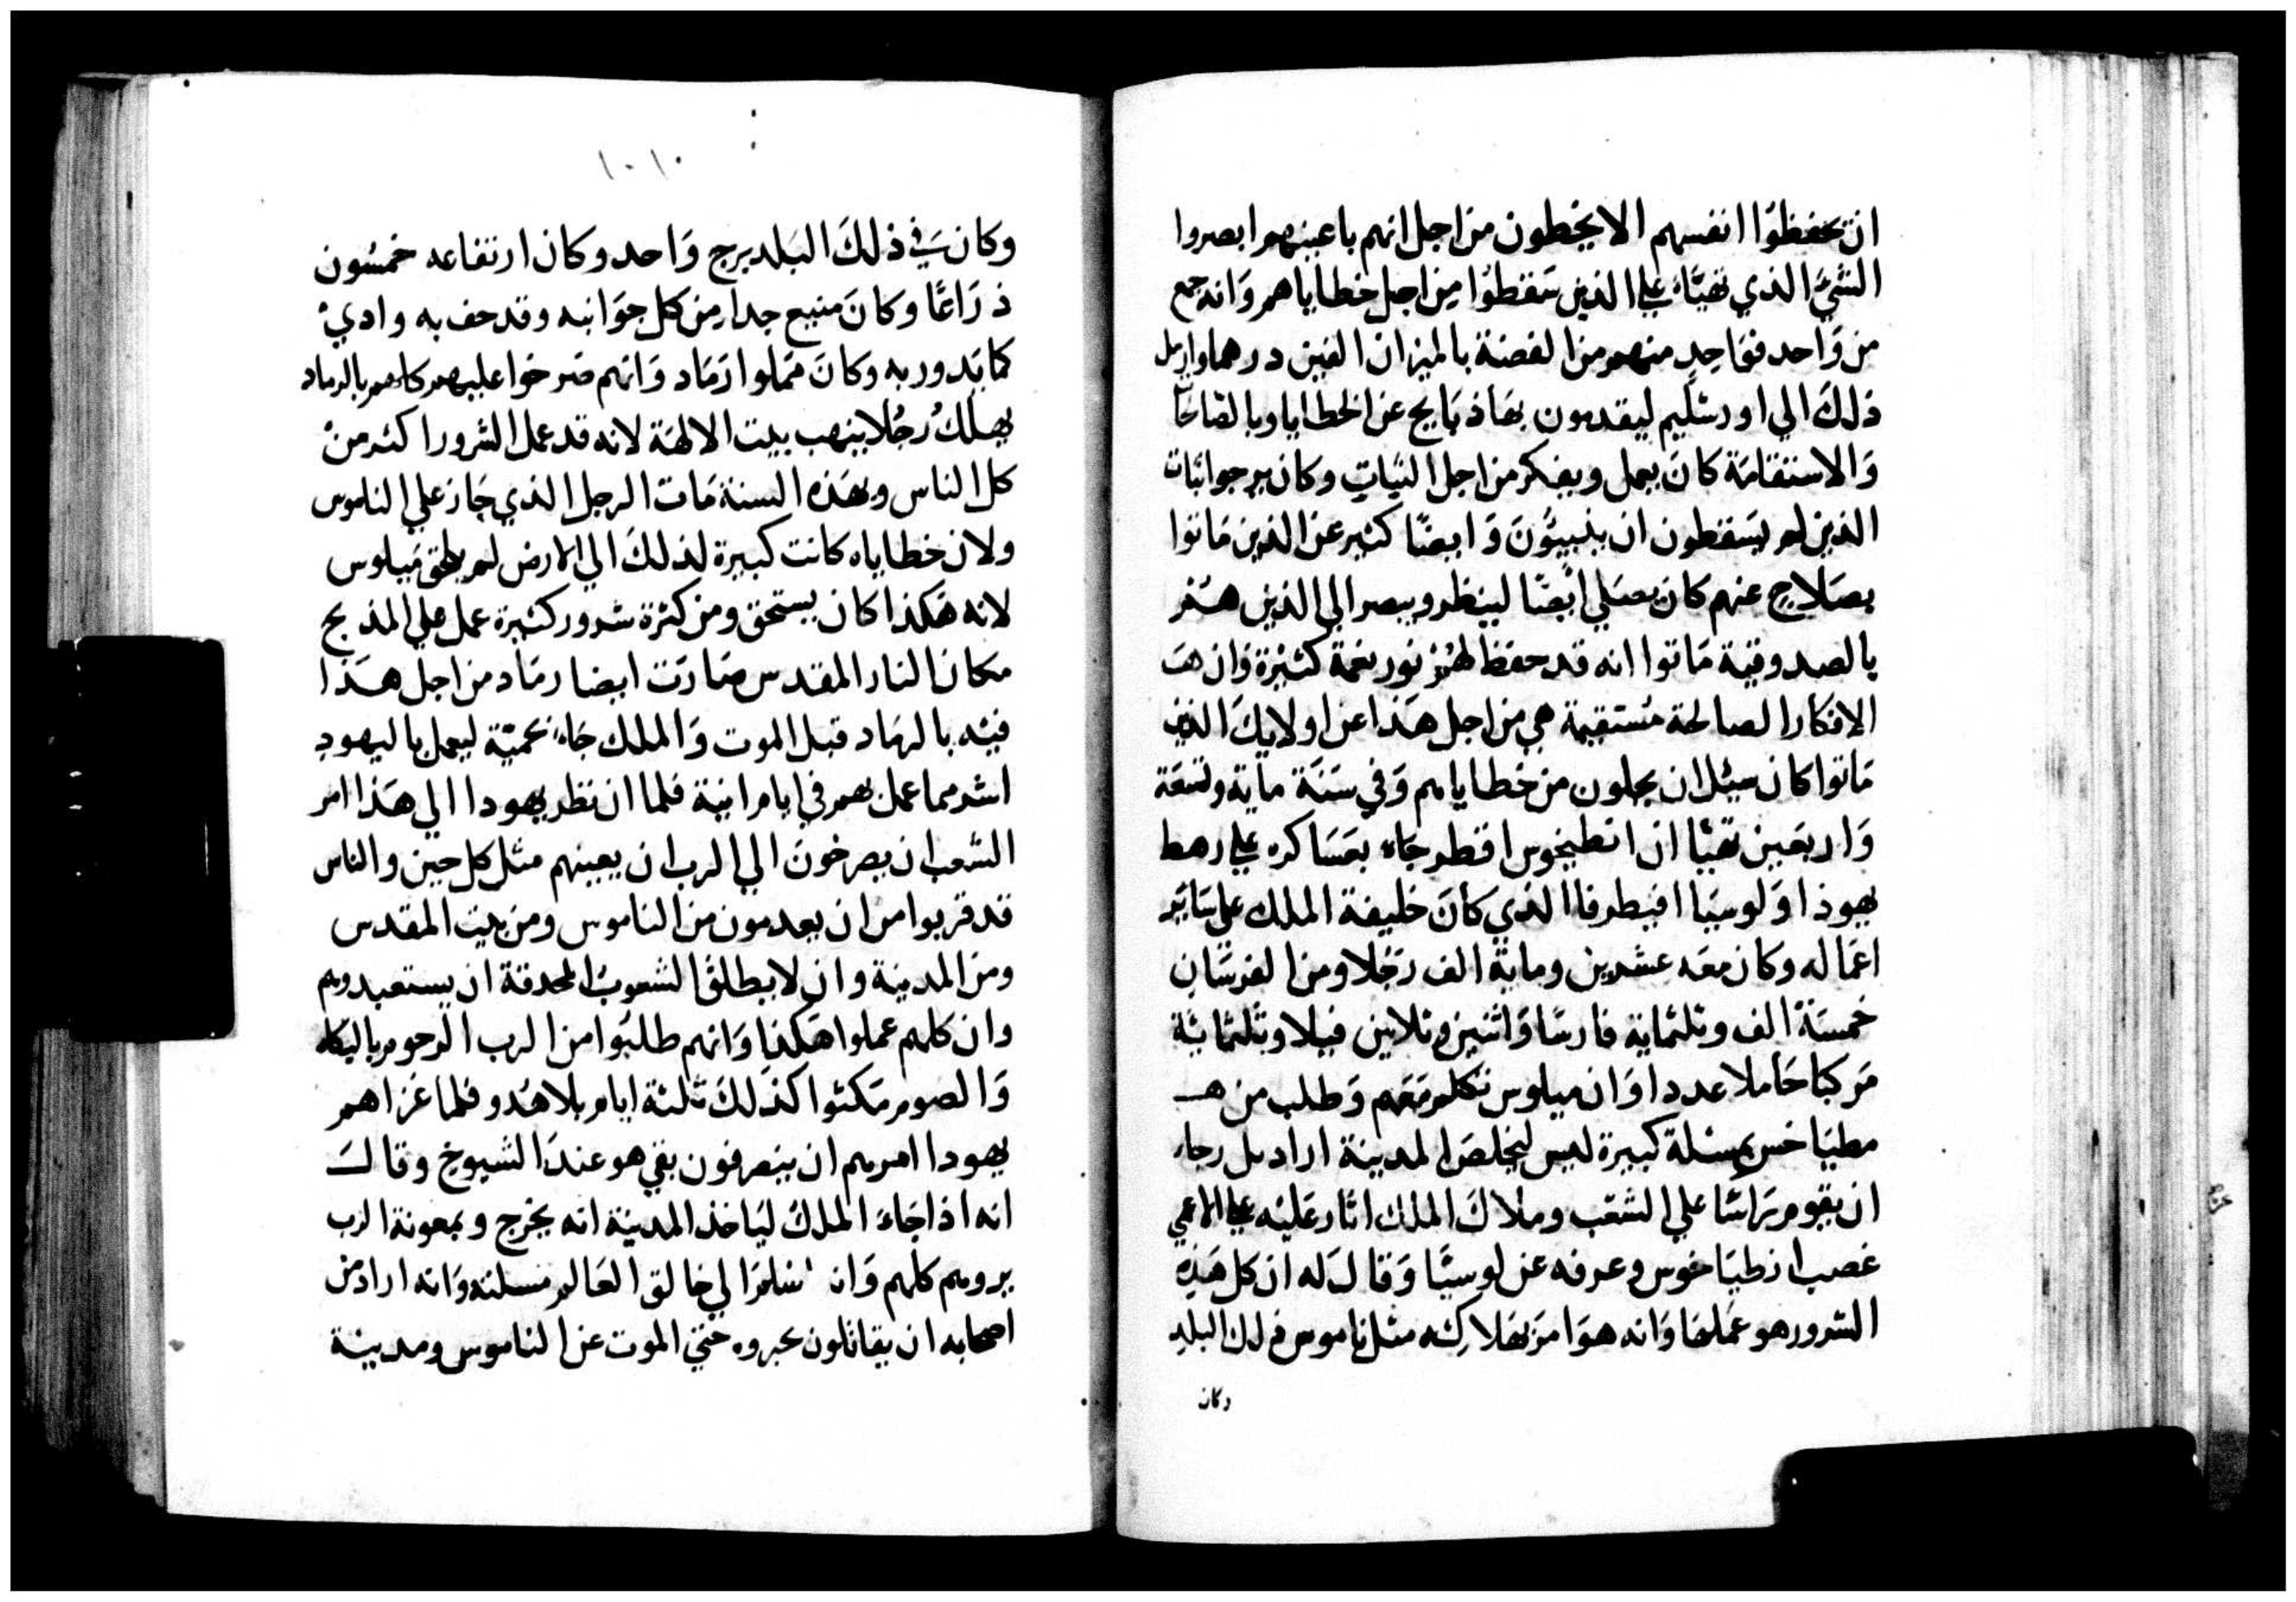 ان تحفظوا انفسهم الا يخطون من اجل انهم باعينهم ابصروا
الشيَّ الذي تهيّاء علي الذين سَقطوُا مِن اجل خطاياهم وَانه جمع
من وَاحد فوَاحدٍ منهم من الفضة بالميزان الفين درهما وارسل
ذلكَ الي اورشليم ليقدمون بهَا ذبَايح عن الخطايا وبالصَالحَا
وَالاستقامَة كانَ يعمل ويفكر من اجل النيات وكان يرجوا ثبات
الذين لم يَسقطون ان ينبيوُنَ وَايضًا كثير عن الذين مَاتوا
بصَلاح عنهم كان يصَلي ايضًا لينظر ويبصر الي الذين هم
بالصدوقية مَاتوا انه قد حفظ لهم نور نعمة كثيرة وَان هَ
الافكار الصالحة مُستقيمة هي من اجل هَذا عن اولايكَ الذين
مَاتوا كان سيئل ان يحلون من خطاياهم وَفي سَنَة ماية وتسعَة
وَاربعين تهيّا ان انطيخوس افطر جَاء بعَسَاكره علي رهط
يهوذا وَلوسيَا افيطرفا الذي كانَ خليفة الملك علي سَاير
اعمَاله وكان معَه عشرين وماية الف رَجُلا ومن الفرسَان
خمسَة الف وتلثماية فارسًا وَاثنين وتلاتين فيلا وتلثماية
مَركبا حَاملا عددا وَان ميلوس تكلم مَعَهم وَطلب من هـ
مطيَاخس بمسئلة كبيرة ليس ليخلصَ المدينة اراد بل رجاء
ان يقوم رَاسًا علي الشعَب وملاكَ الملك اثار عَليه علي الاعمي
غصب انطيَاخوس وعرفه عن لوسيَّا وَقالَ له ان كل هَذهِ
الشرور هو عَملهَا وَانه هوَا مَر بهَلاكِه مثل ناموس ذلك البلد
وكان
١٠١٠
وكانَ في ذلكَ البَلد برج وَاحد وكان ارتفاعه خمسُون
ذرَاعًا وكانَ منيع جدا من كل جوَانبه وقد حف به وادي
كمَا يَدور به وكانَ مَملوا رَمَاد وَانهم صَرخوا عليهم كلهم بالرماد
يهلكُ رجُلا ينهب بيت الالهَة لانه قد عمل الشرور اكثر من
كل الناس وبهَذه السنة مَات الرجل الذي جَاز علي الناموس
ولان خطاياه كانت كبيرة لذلكَ الي الارض لم يلحق مَيلوس
لانه هَكذا كان يستحق ومن كثرة شرور كثيرة عمل علي المذبح
مكان النار المقدس صَارَت ايضا رمَاد من اجل هَذا
فيَه بالرمَاد قبل الموت وَالملك جَاء بحميّة ليعمل باليهود
اشد مما عمل بهم في ايام ابيَة فلما ان نظر يهودا الي هَذا امر
الشعب ان يصرخونَ الي الرب ان يعينهم مثل كل حين والناس
قد قربوا من ان يعدمون من الناموس ومن بيت المقدس
ومن المدينة وان لا يطلق الشعوبُ المحدقة ان يستعبدوهم
وان كلهم عملوا هَكذا وَانهم طلبَوا من الرب الرحوم بالبكاء
وَالصوم مَكثوا كذلكَ ثلثة ايام بلا هُدو فلما عَزاهم
يهودا امرهم ان ينصرفون بقي هو عندَ الشيوخ وقالَ
انه اذا جَاءَ الملكُ ليَاخذ المدينة انه يخرج وبمعونة الرب
يروهم كلهم وَان اسَلمَ الي خالق العَالم مسلته وَانه اراد من
اصحابه ان يقاتلون بحروه حتي الموت عن الناموس ومدينة